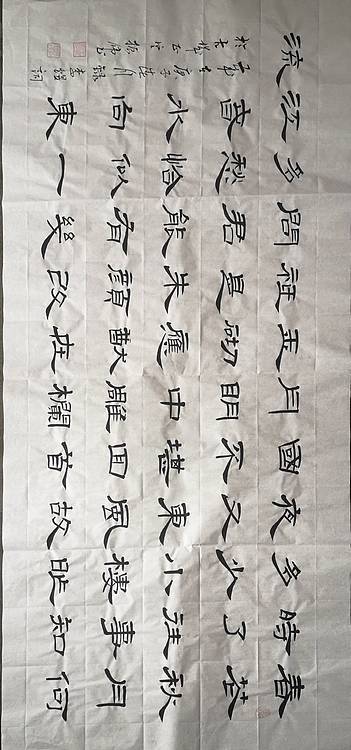 春花秋月何
時了往事知
多少小樓昨
夜又東風故
國不堪回首
月明中雕欄
玉砌應猶在
祗是朱顏改
問君能有幾
多愁恰似一
江春水向東
流